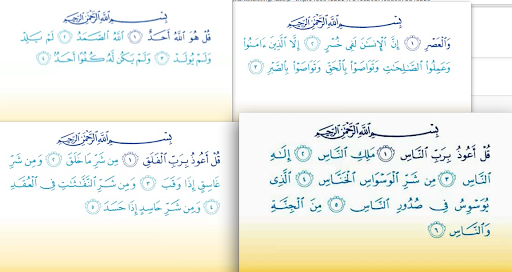 بِسْمِ اللَّهِ الرَّحْمَٰنِ الرَّحِيمِ
قُلْ هُوَ اللَّهُ أَحَدٌ ۝١ اللَّهُ الصَّمَدُ ۝٢ لَمْ يَلِدْ
وَلَمْ يُولَدْ ۝٣ وَلَمْ يَكُن لَّهُ كُفُوًا أَحَدٌ ۝٤
بِسْمِ اللَّهِ الرَّحْمَٰنِ الرَّحِيمِ
وَالْعَصْرِ ۝١ إِنَّ الْإِنسَانَ لَفِي خُسْرٍ ۝٢ إِلَّا الَّذِينَ ءَامَنُوا
وَعَمِلُوا الصَّالِحَاتِ وَتَوَاصَوْا بِالْحَقِّ وَتَوَاصَوْا بِالصَّبْرِ ۝٣
بِسْمِ اللَّهِ الرَّحْمَٰنِ الرَّحِيمِ
قُلْ أَعُوذُ بِرَبِّ الْفَلَقِ ۝١ مِن شَرِّ مَا خَلَقَ ۝٢ وَمِن شَرِّ
غَاسِقٍ إِذَا وَقَبَ ۝٣ وَمِن شَرِّ النَّفَّاثَاتِ فِي الْعُقَدِ
۝٤ وَمِن شَرِّ حَاسِدٍ إِذَا حَسَدَ ۝٥
بِسْمِ اللَّهِ الرَّحْمَٰنِ الرَّحِيمِ
قُلْ أَعُوذُ بِرَبِّ النَّاسِ ۝١ مَلِكِ النَّاسِ ۝٢ إِلَٰهِ
النَّاسِ ۝٣ مِن شَرِّ الْوَسْوَاسِ الْخَنَّاسِ ۝٤ الَّذِي
يُوَسْوِسُ فِي صُدُورِ النَّاسِ ۝٥ مِنَ الْجِنَّةِ
وَالنَّاسِ ۝٦